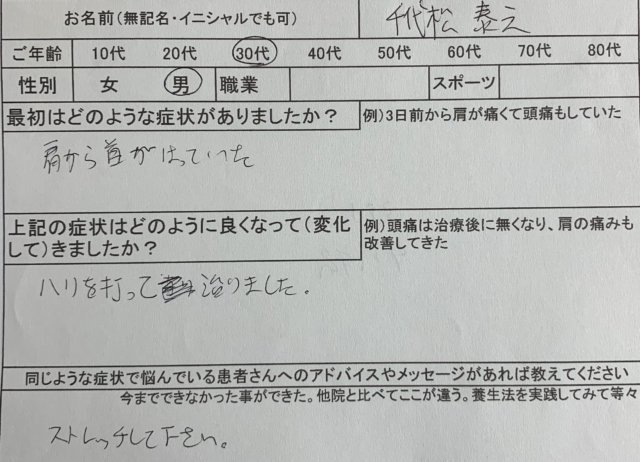 お名前(無記名・イニシャルでも可) 千代松 泰之
ご年齢 10代 20代 30代 40代 50代 60代 70代 80代
性別 女 男 職業 スポーツ
最初はどのような症状がありましたか？ 例)3日前から肩が痛くて頭痛もしていた
肩から首がはっていた
上記の症状はどのように良くなって(変化 例)頭痛は治療後に無くなり、肩の痛みも
して)きましたか？ 改善してきた
ハリを打って 治りました。
同じような症状で悩んでいる患者さんへのアドバイスやメッセージがあれば教えてください
今までできなかった事ができた。他院と比べてここが違う。養生法を実践してみて等々
ストレッチして下さい。